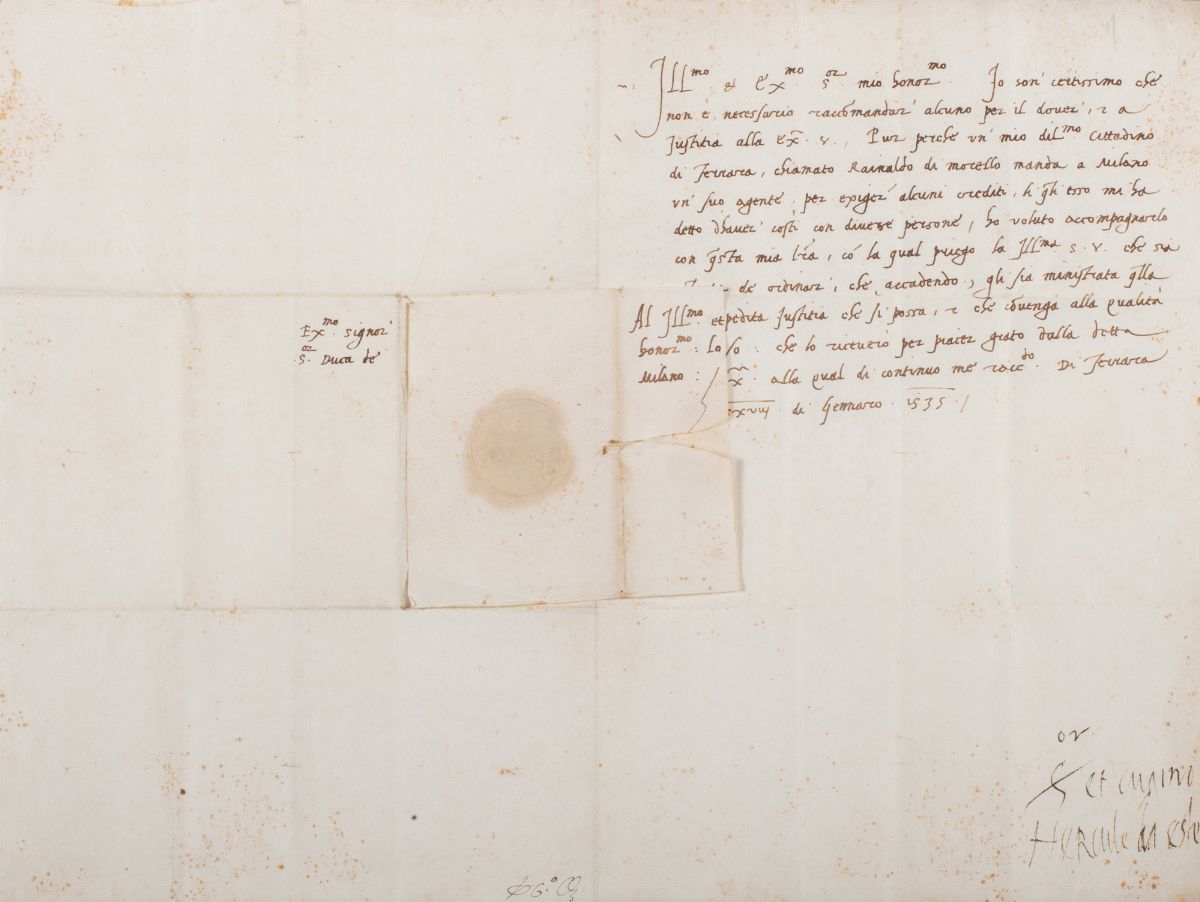 Ill^mo et Ex^mo S^or mio honor^mo. Io son' certissimo che
non è necessario raccomandar' alcuno per il dover', et a
Justitia alla Ex. v., Pur perche un' mio dil^mo Cittadino
di Ferrara, chiamato Rainaldo di morello manda a Milano
un' suo agente per exiger' alcuni crediti, li qli esso mi ha
detto d'haver' costì con diverse persone, ho voluto accompagnarlo
con qsta mia lra, cō la qual priego la Ill^ma S. V. che sia
de ordinar', che accadendo, gli sia ministrata qlla
expedita Justitia che si possa, et che cōvenga alla qualità
che lo riceverò per piacer grato dalla detta
Ex. alla qual di continuo me racc^do. Di Ferrara
xviij di Gennaro 1535.
Al Ill^mo
honor^mo:
Milano:
Ex^mo Signor'
S^or Duca de
or
et cugino
Hercule da este